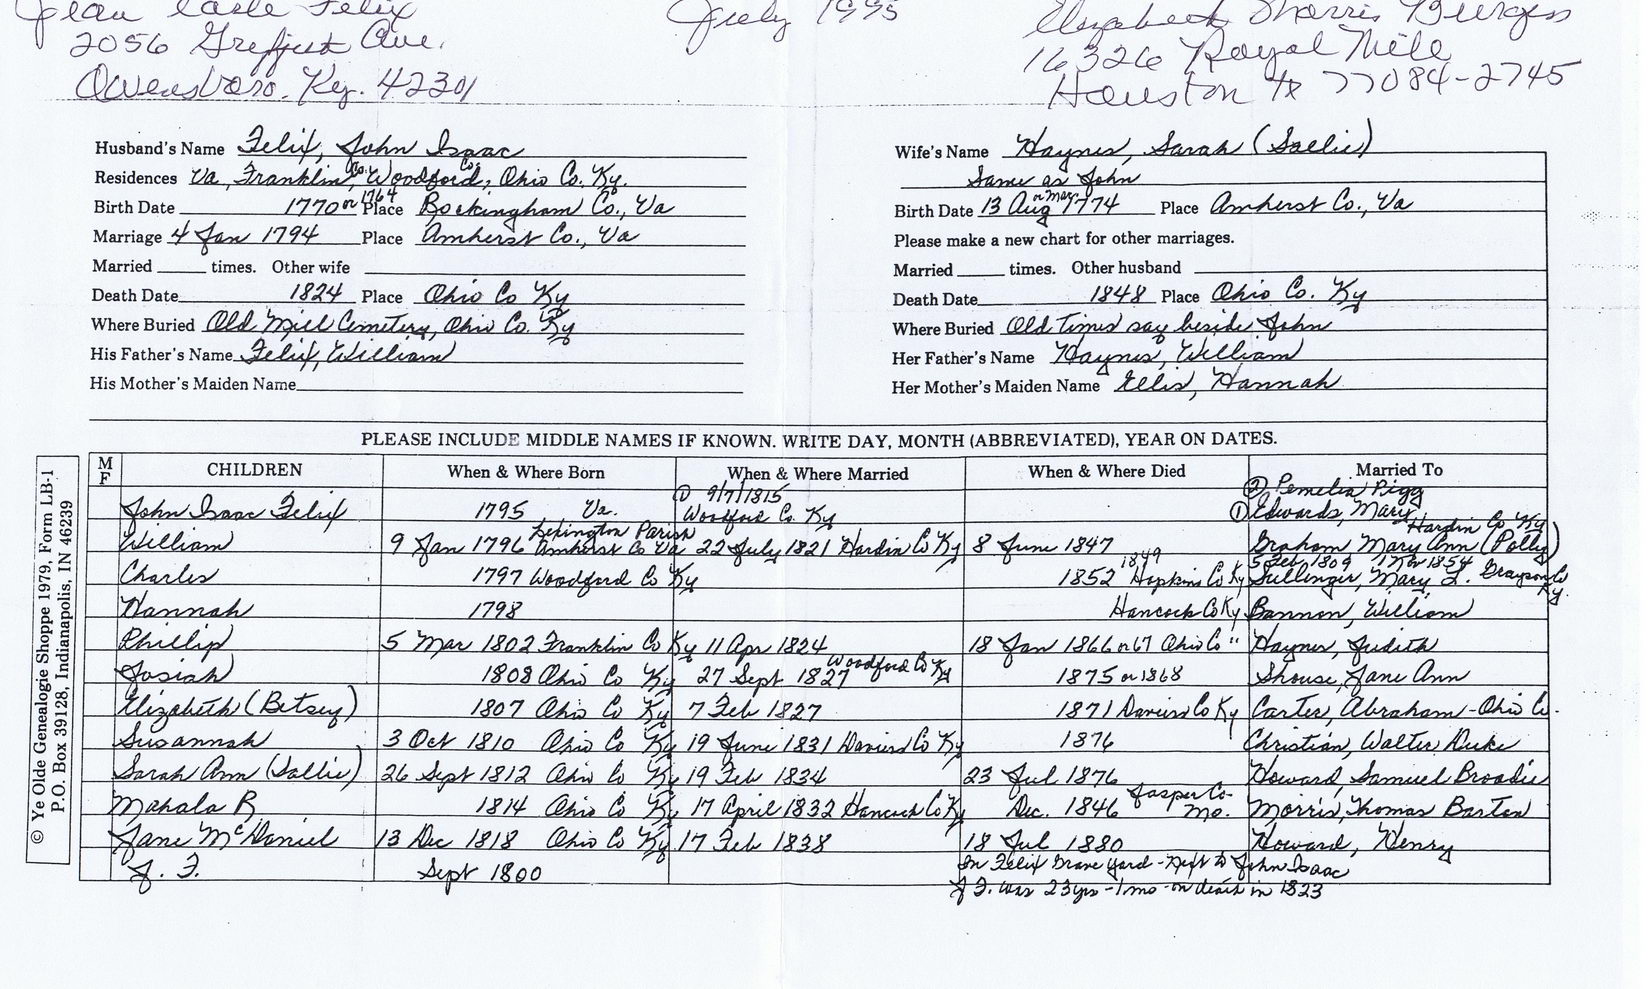 Jean Felix
2056 Ave.
Owensboro. Ky. 42301
July 1995
Elizabeth Morris Burgess
16326 Royal Mile
Houston Tx 77084-2745
Husband's Name Felix, John Isaac
Residences Va, Franklin Co., Woodford Co., Ohio Co. Ky.
Birth Date 1770 or 1764 Place Rockingham Co., Va
Marriage 4 Jan 1794 Place Amherst Co., Va
Married times. Other wife
Death Date 1824 Place Ohio Co Ky
Where Buried Old Mill Cemetery, Ohio Co. Ky
His Father's Name Felix, William
His Mother's Maiden Name
Wife's Name Haynes, Sarah (Sallie)
Same as John
Birth Date 13 Aug or Mar 1774 Place Amherst Co., Va
Please make a new chart for other marriages.
Married times. Other husband
Death Date 1848 Place Ohio Co. Ky
Where Buried Old Times say beside John
Her Father's Name Haynes, William
Her Mother's Maiden Name Ellis, Hannah
PLEASE INCLUDE MIDDLE NAMES IF KNOWN. WRITE DAY, MONTH (ABBREVIATED), YEAR ON DATES.
M F CHILDREN When & Where Born When & Where Married When & Where Died Married To
John Isaac Felix 1795 Va. ① 9/7/1815 Woodford Co. Ky ② Pemelia Pigg ① Edwards, Mary
William 9 Jan 1796 Lexington Parish Amherst Co Va 22 July 1821 Hardin Co Ky 8 June 1847 Graham Mary Ann (Polly) Hardin Co Ky
Charles 1797 Woodford Co Ky 1852 1849 Hopkins Co Ky Sullinger, Mary L. 5 Feb 1809 1854 Grayson Co Ky.
Hannah 1798 Hancock Co Ky Bannon, William
Phillip 5 Mar 1802 Franklin Co Ky 11 Apr 1824 18 Jan 1866 or 67 Ohio Co " Haynes, Judith
Josiah 1808 Ohio Co Ky 27 Sept 1827 Woodford Co Ky 1875 or 1868 Shouse, Jane Ann
Elizabeth (Betsey) 1807 Ohio Co Ky 7 Feb 1827 1871 Daviess Co Ky Carter, Abraham - Ohio Co.
Susannah 3 Oct 1810 Ohio Co Ky 19 June 1831 Daviess Co Ky 1876 Christian, Walter Duke
Sarah Ann (Sallie) 26 Sept 1812 Ohio Co Ky 19 Feb 1834 23 Jul 1876 Howard, Samuel Broadie
Mahala R 1814 Ohio Co Ky 17 April 1832 Hancock Co Ky Dec. 1846 Jasper Co. Mo. Morris, Thomas Barton
Jane McDaniel 13 Dec 1818 Ohio Co Ky 17 Feb 1838 18 Jul 1880 Howard, Henry
J. F. Sept 1800 In Felix Grave yard - Next to John Isaac
J F. was 23 yrs - 1 mo - on death in 1823
© Ye Olde Genealogie Shoppe 1979, Form LB-1
P.O. Box 39128, Indianapolis, IN 46239